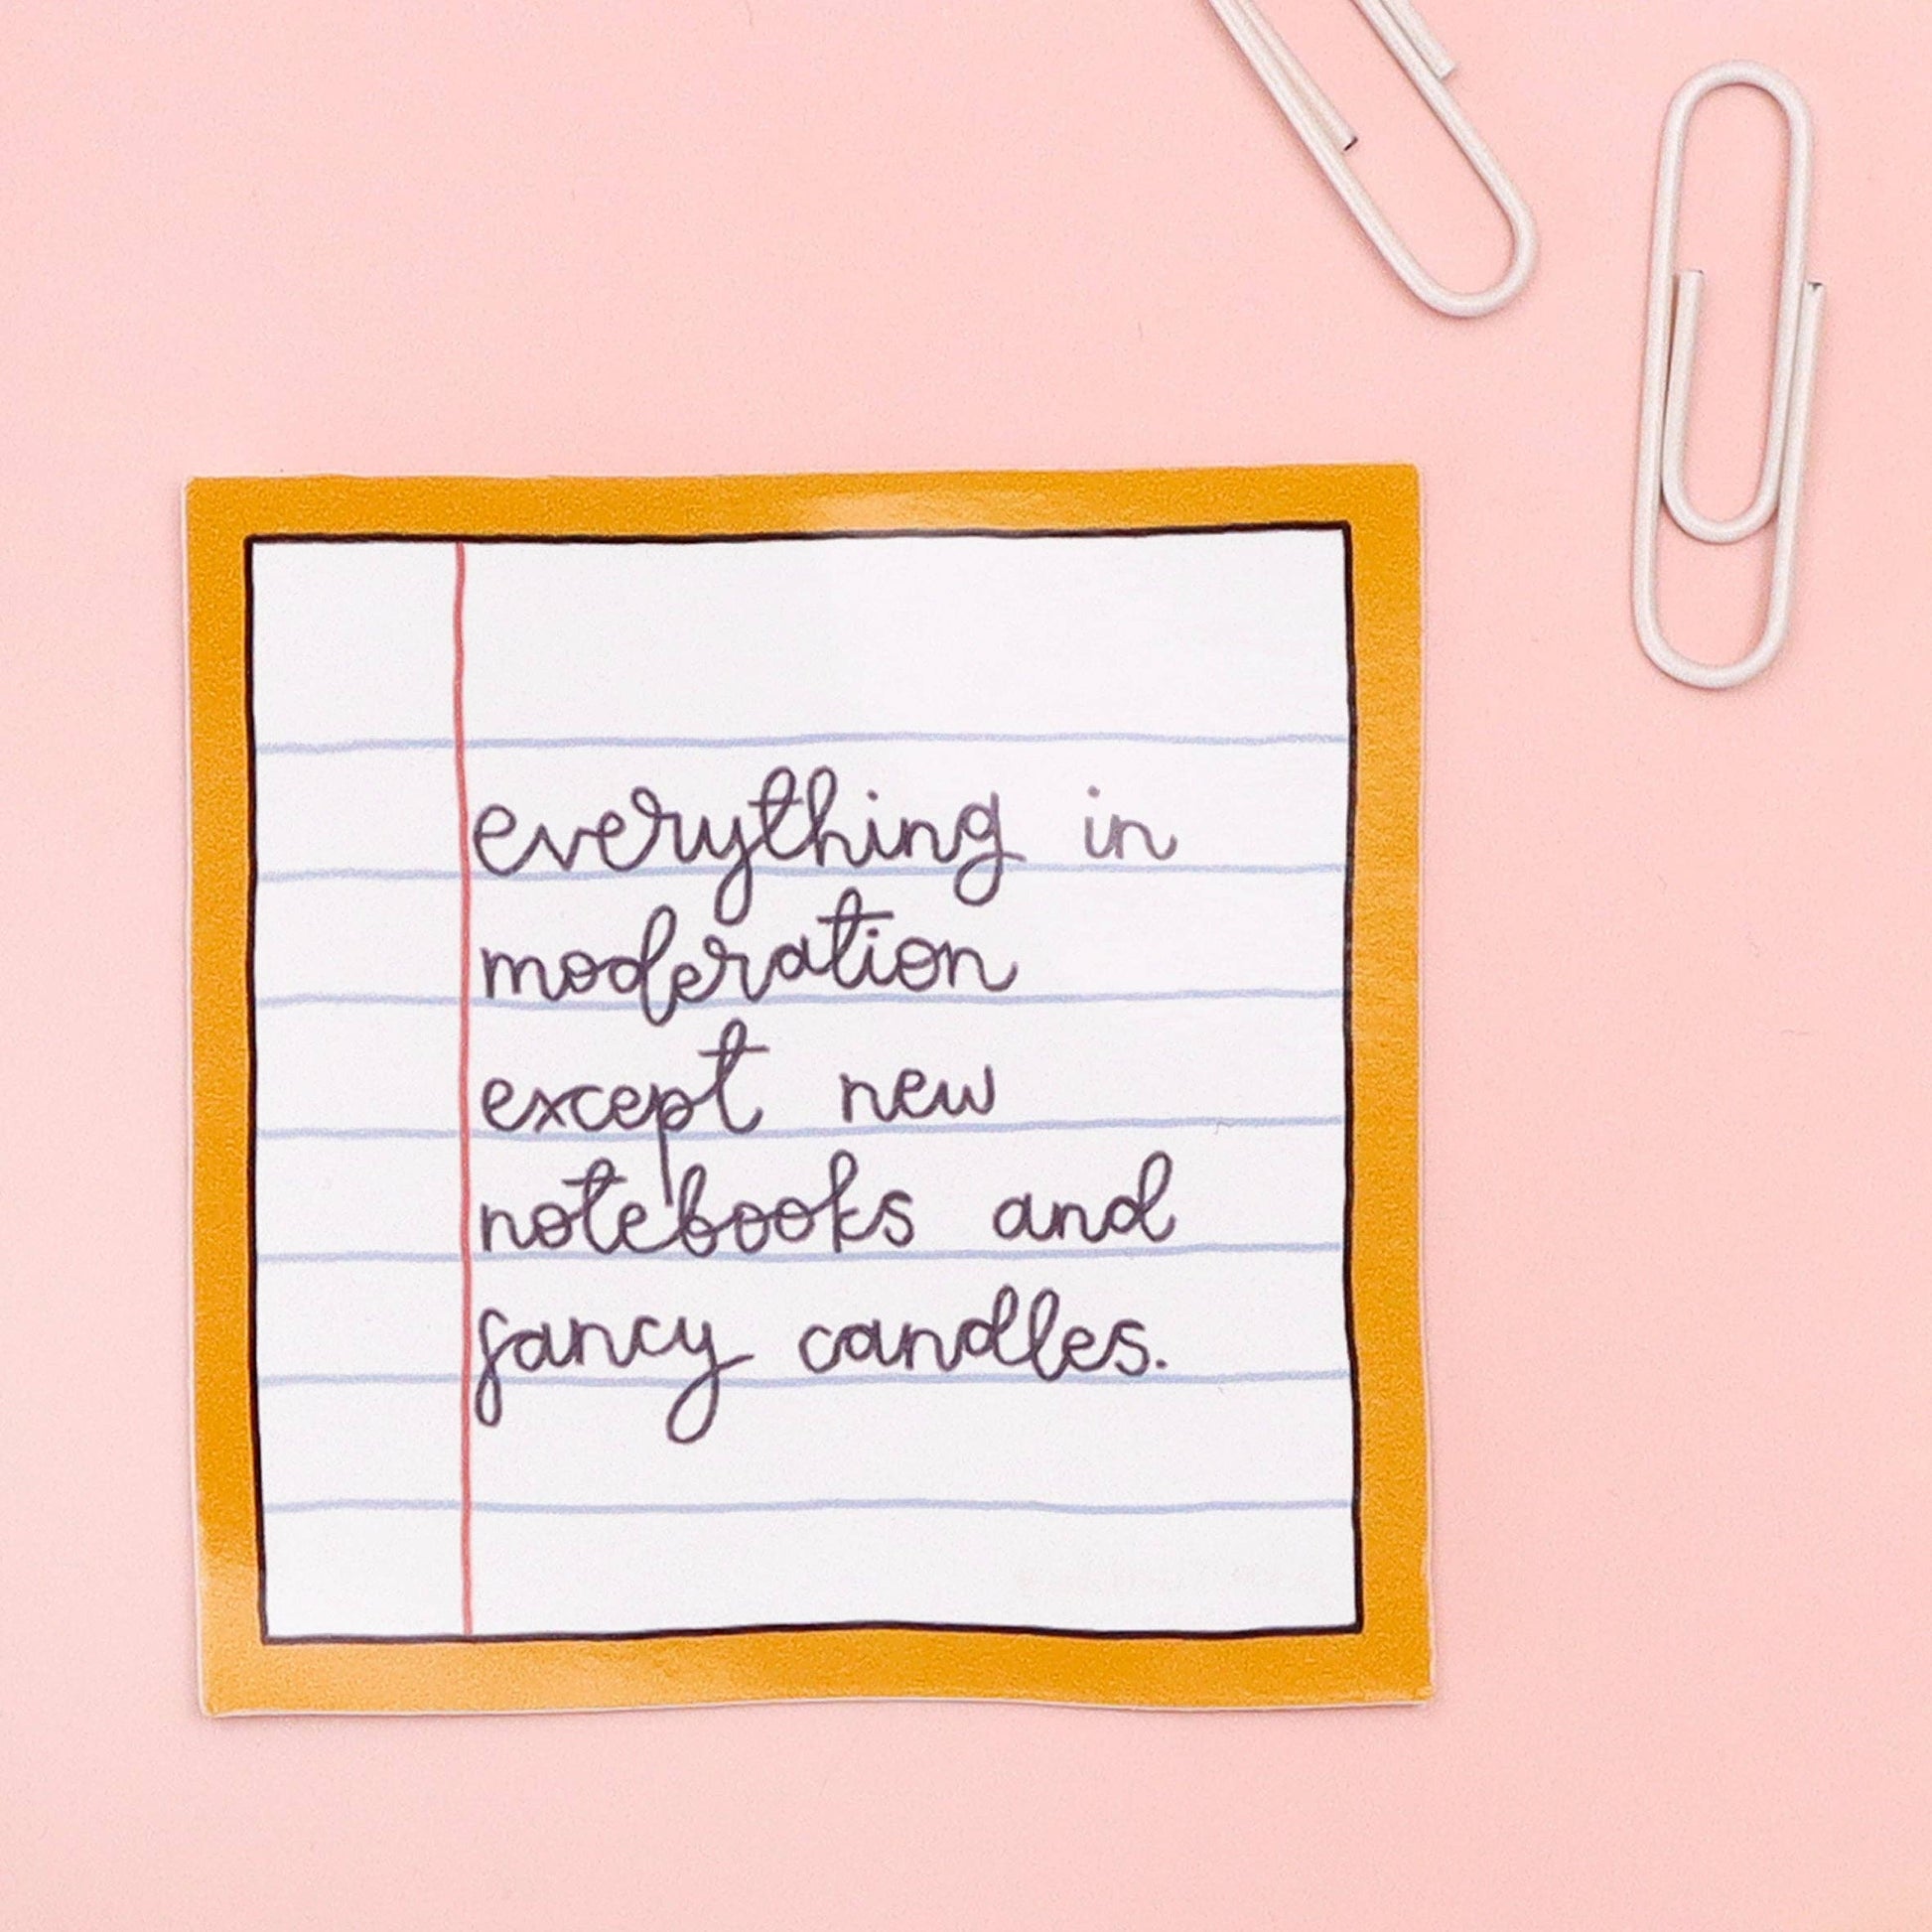 everything in
moderation
except new
notebooks and
fancy candles.